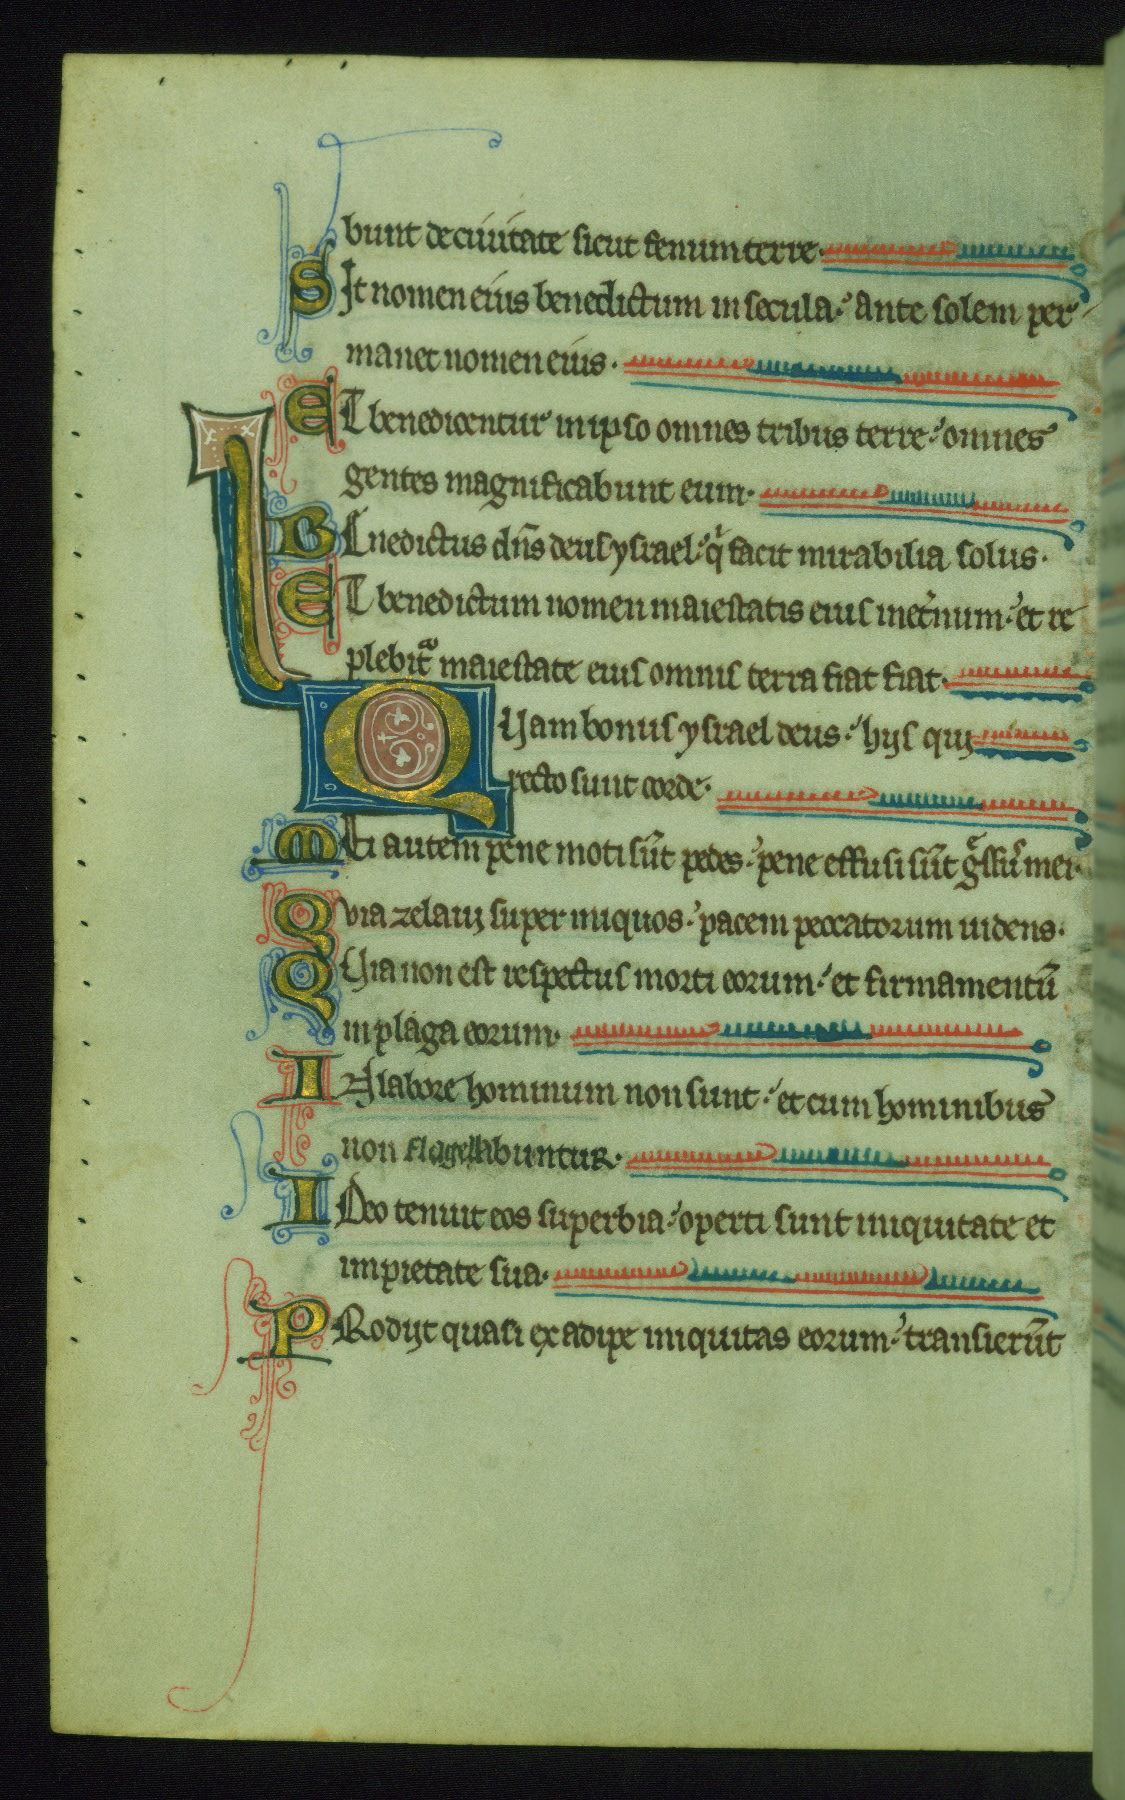 bunt de ciuitate sicut fenum terre.
Sit nomen eius benedictum in secula. ante solem per
manet nomen eius.
ET benedicentur in ipso omnes tribus terre. omnes
gentes magnificabunt eum.
BEnedictus dn̄s deus ysrael. qͥ facit mirabilia solus.
ET benedictum nomen maiestatis eius inet̾num. et re
plebit᷑ maiestate eius omnis terra fiat fiat.
QUam bonus ysrael deus. hijs qui
recto sunt corde.
MEi autem pene moti sūt pedes. pene effusi sūt gͣssus̾ mei.
Quia zelaui super iniquos. pacem peccatorum uidens.
QUia non est respectus morti eorum. et firmamentū
in plaga eorum.
IN labore hominum non sunt. et cum hominibus
non flagellabuntur.
IDeo tenuit eos superbia. operti sunt iniquitate et
impietate sua.
PRodijt quasi ex adipe iniquitas eorum. transierūt